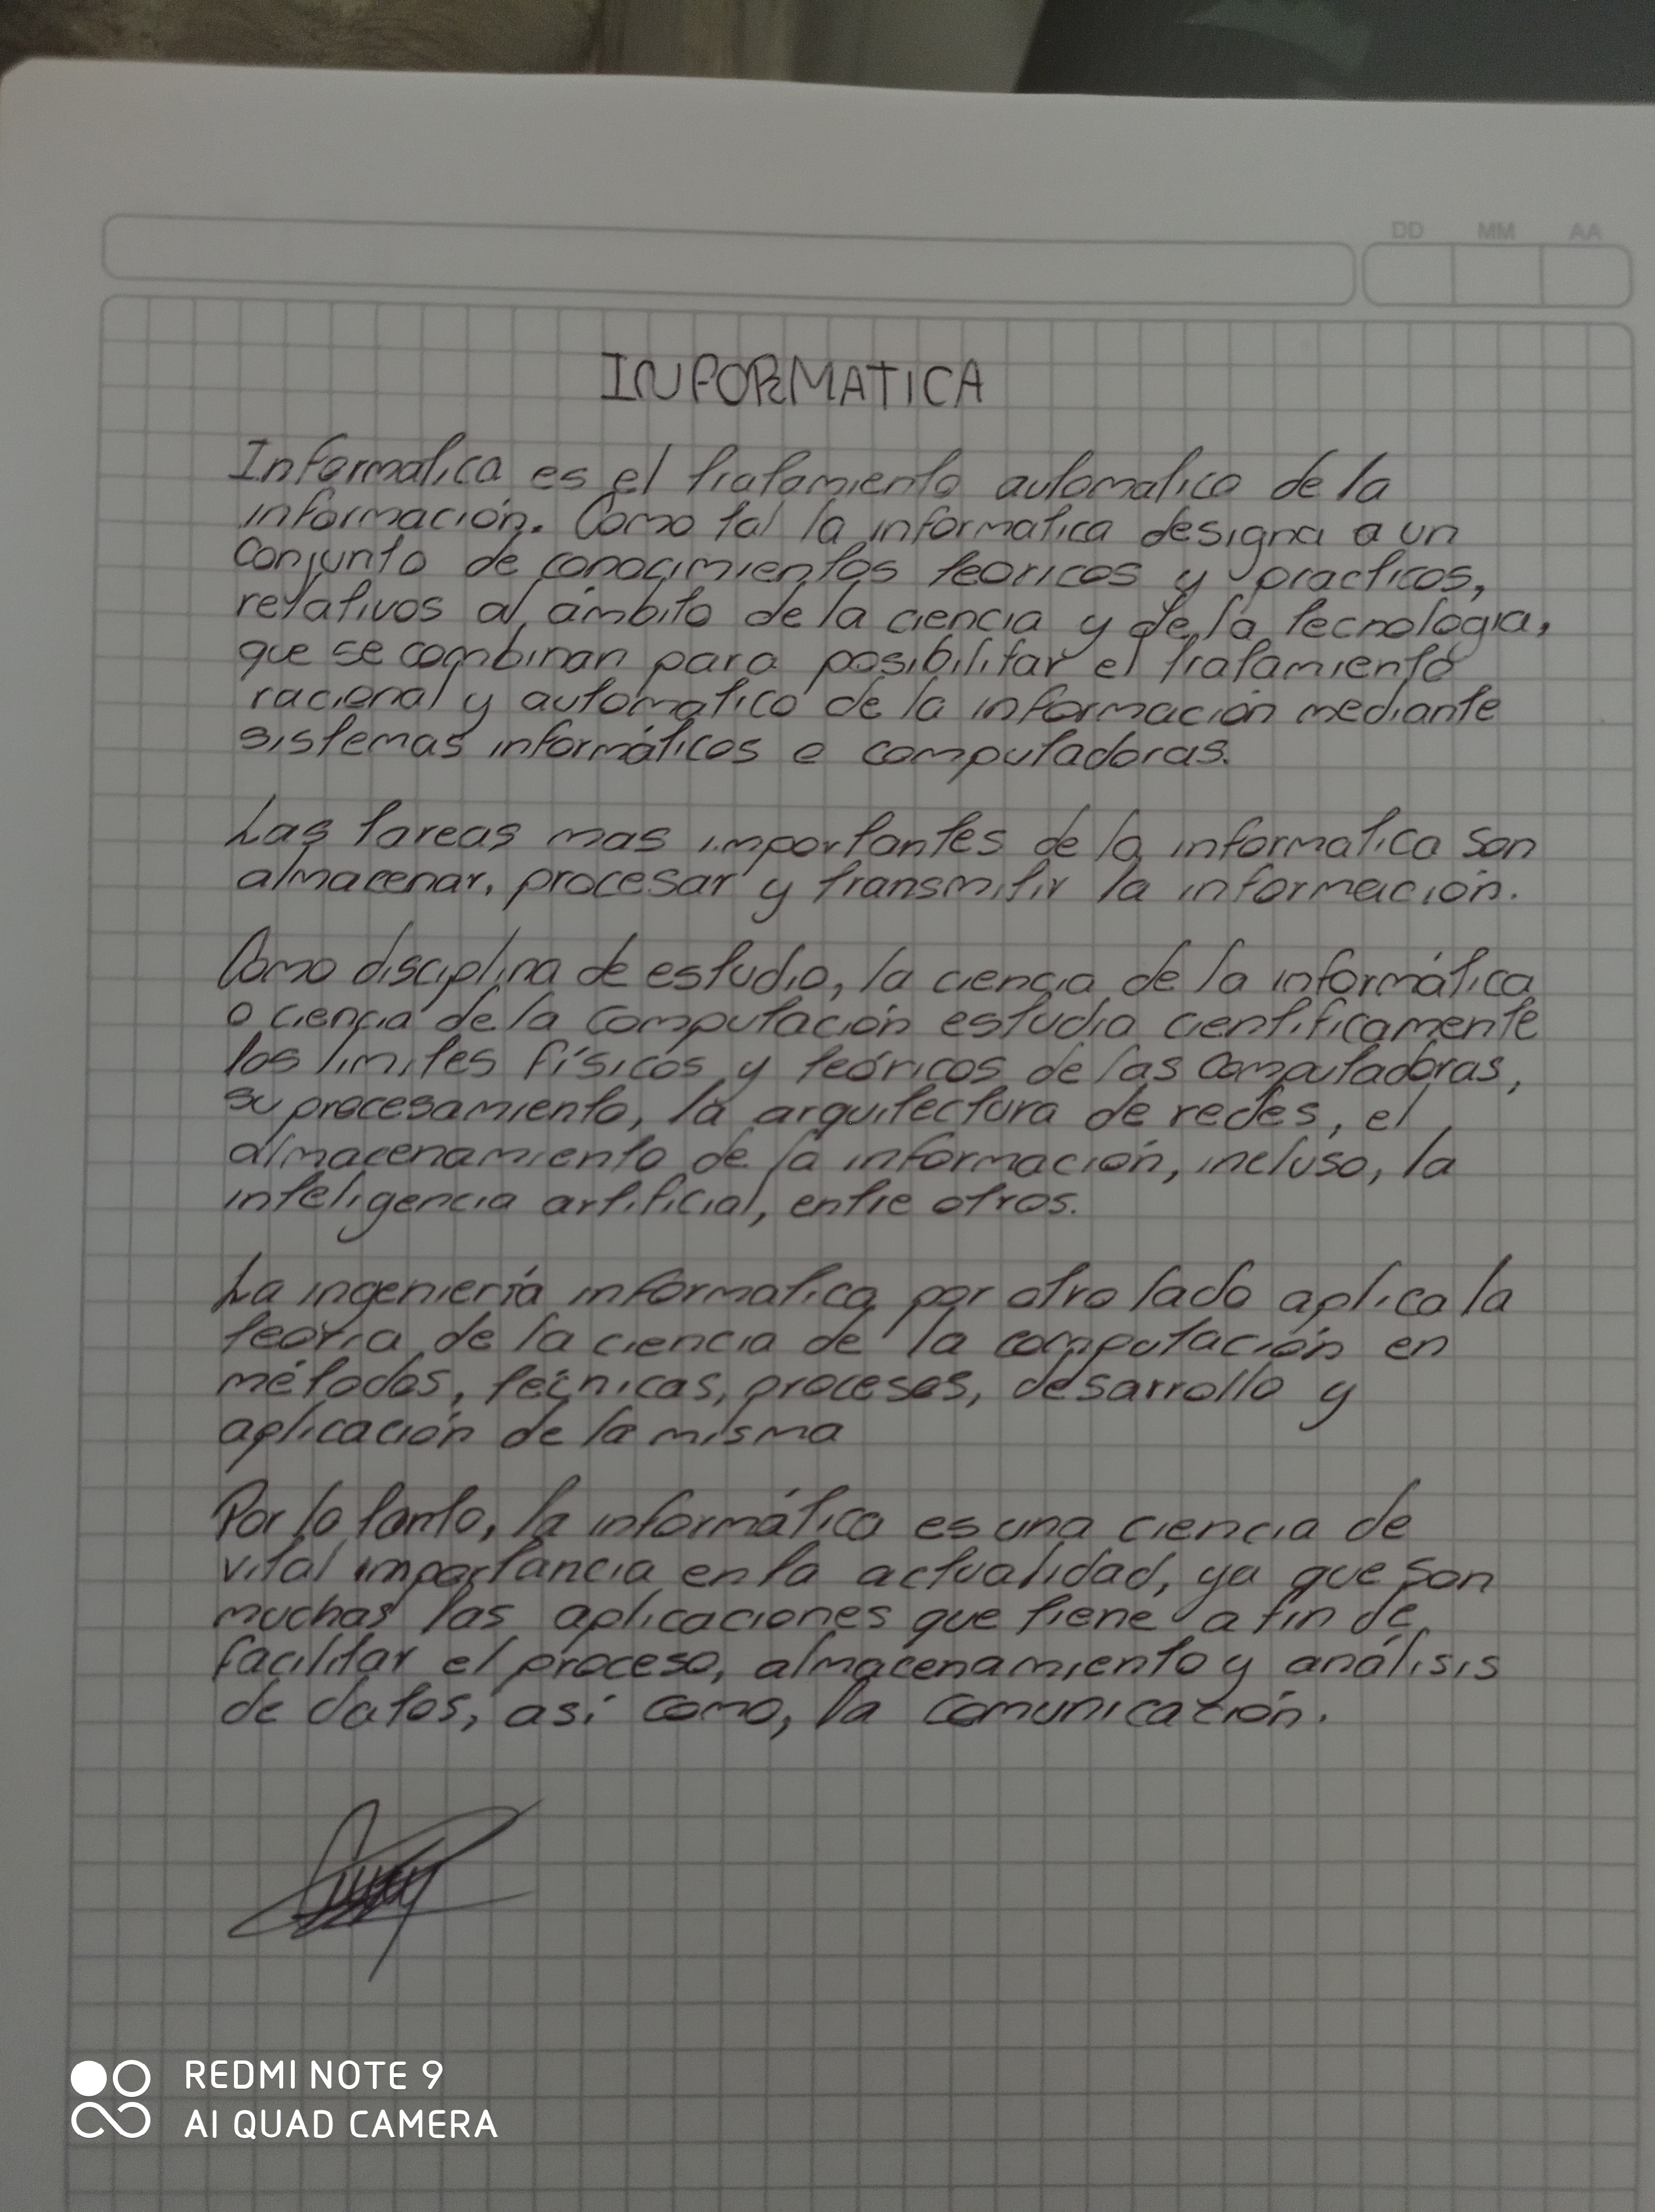 DD MM AA
INFORMATICA
Informatica es el tratamiento automatico de la
información. Como tal la informatica designa a un
conjunto de conocimientos teoricos y practicos,
relativos al ámbito de la ciencia y de la tecnologia,
que se combinan para posibilitar el tratamiento
racional y automatico de la información mediante
sistemas informáticos e computadoras.
Las tareas mas importantes de la informatica son
almacenar, procesar y transmitir la información.
Como disciplina de estudio, la ciencia de la informática
o ciencia de la computación estudia cientificamente
los limites físicos y teóricos de las computadoras,
su procesamiento, la arquitectura de redes, el
almacenamiento de la información, incluso, la
inteligencia artificial, entre otros.
La ingeniería informatica por otro lado aplica la
teoría de la ciencia de la computación en
métodos, técnicas, procesos, desarrollo y
aplicación de la misma
Por lo tanto, la informática es una ciencia de
vital importancia en la actualidad, ya que son
muchas las aplicaciones que tiene a fin de
facilitar el proceso, almacenamiento y análisis
de datos, así como, la comunicación.
REDMI NOTE 9
AI QUAD CAMERA